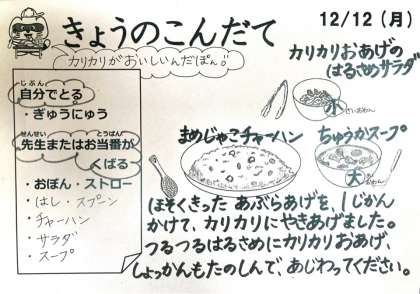 きょうのこんだて
12/12 (月)
カリカリがおいしいんだぽん♪
カリカリおあげの
はるさめサラダ
じぶん
自分でとる
・ぎゅうにゅう
せんせい とうばん
先生またはお当番が
くばる
・おぼん・ストロー
・はし・スプーン
・チャーハン
・サラダ
・スープ
小
まめじゃこチャーハン
ちゅうかスープ
大
おわん
ほそくきった あぶらあげを、1じかん
かけて、カリカリにやきあげました。
つるつるはるさめにカリカリおあげ、
しょっかんもたのしんで、あじわってください。